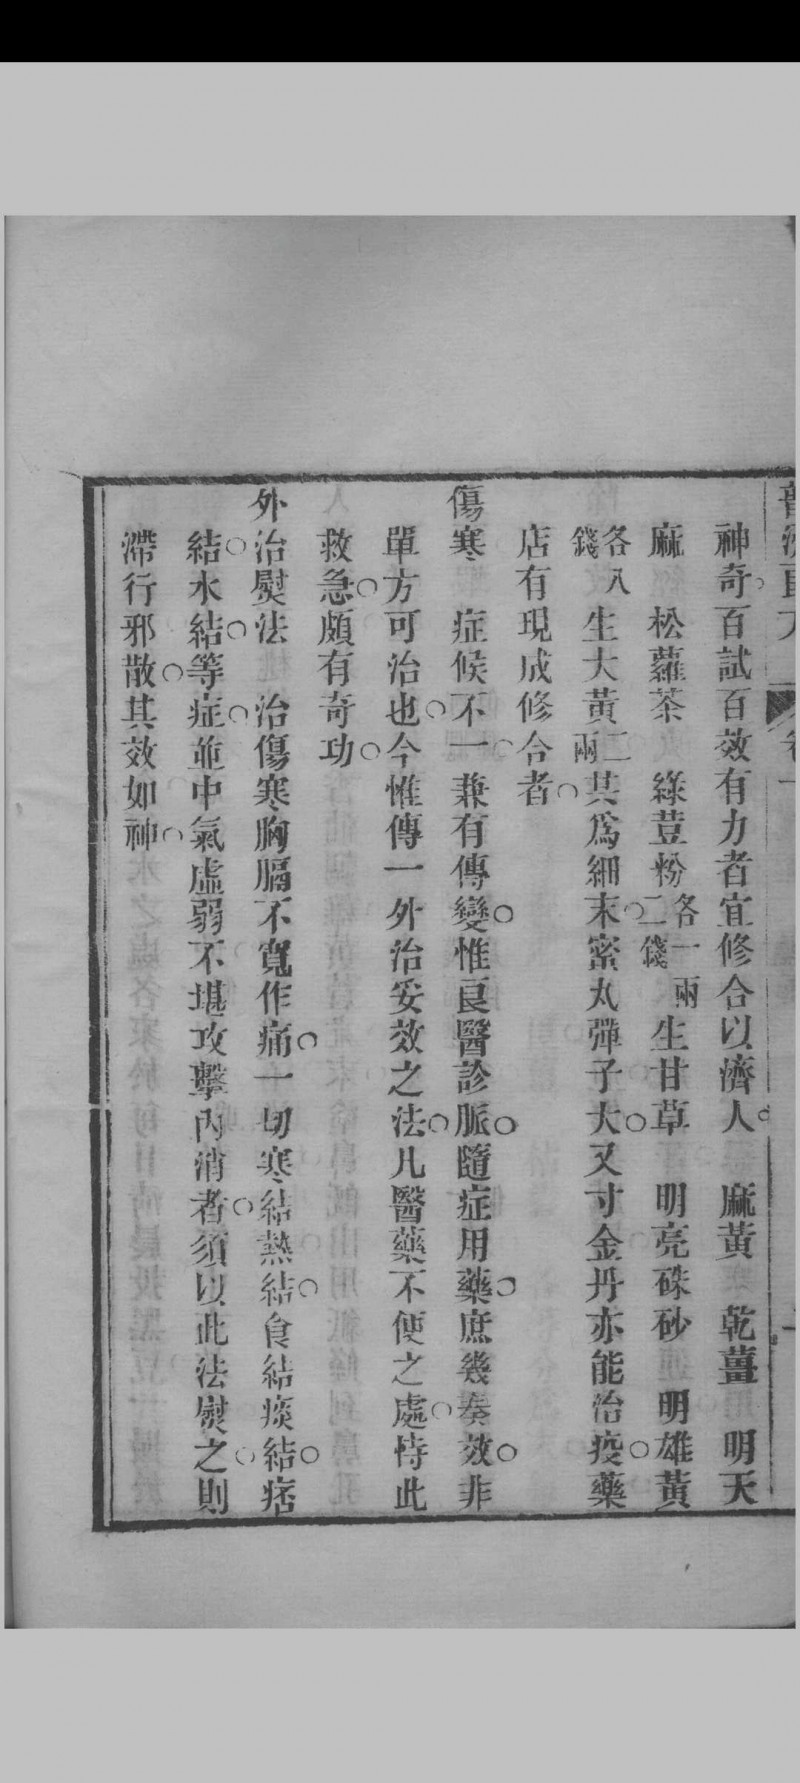 神奇百試百效有力者宜修合以濟人 麻黃 乾薑 明天
麻 松蘿茶 綠荳粉各一兩二錢 生甘草 明亮硃砂 明雄黃
各八錢 生大黃二兩 共爲細末密丸彈子大又寸金丹亦能治疫藥
店有現成修合者
傷寒 症候不一兼有傳變惟良醫診脈隨症用藥庶幾奏效非
單方可治也今惟傳一外治妥效之法凡醫藥不便之處恃此
救急頗有奇功
外治熨法 治傷寒胸膈不寬作痛一切寒結熱結食結痰結痞
結水結等症並中氣虛弱不堪攻擊內消者須以此法熨之則
滯行邪散其效如神